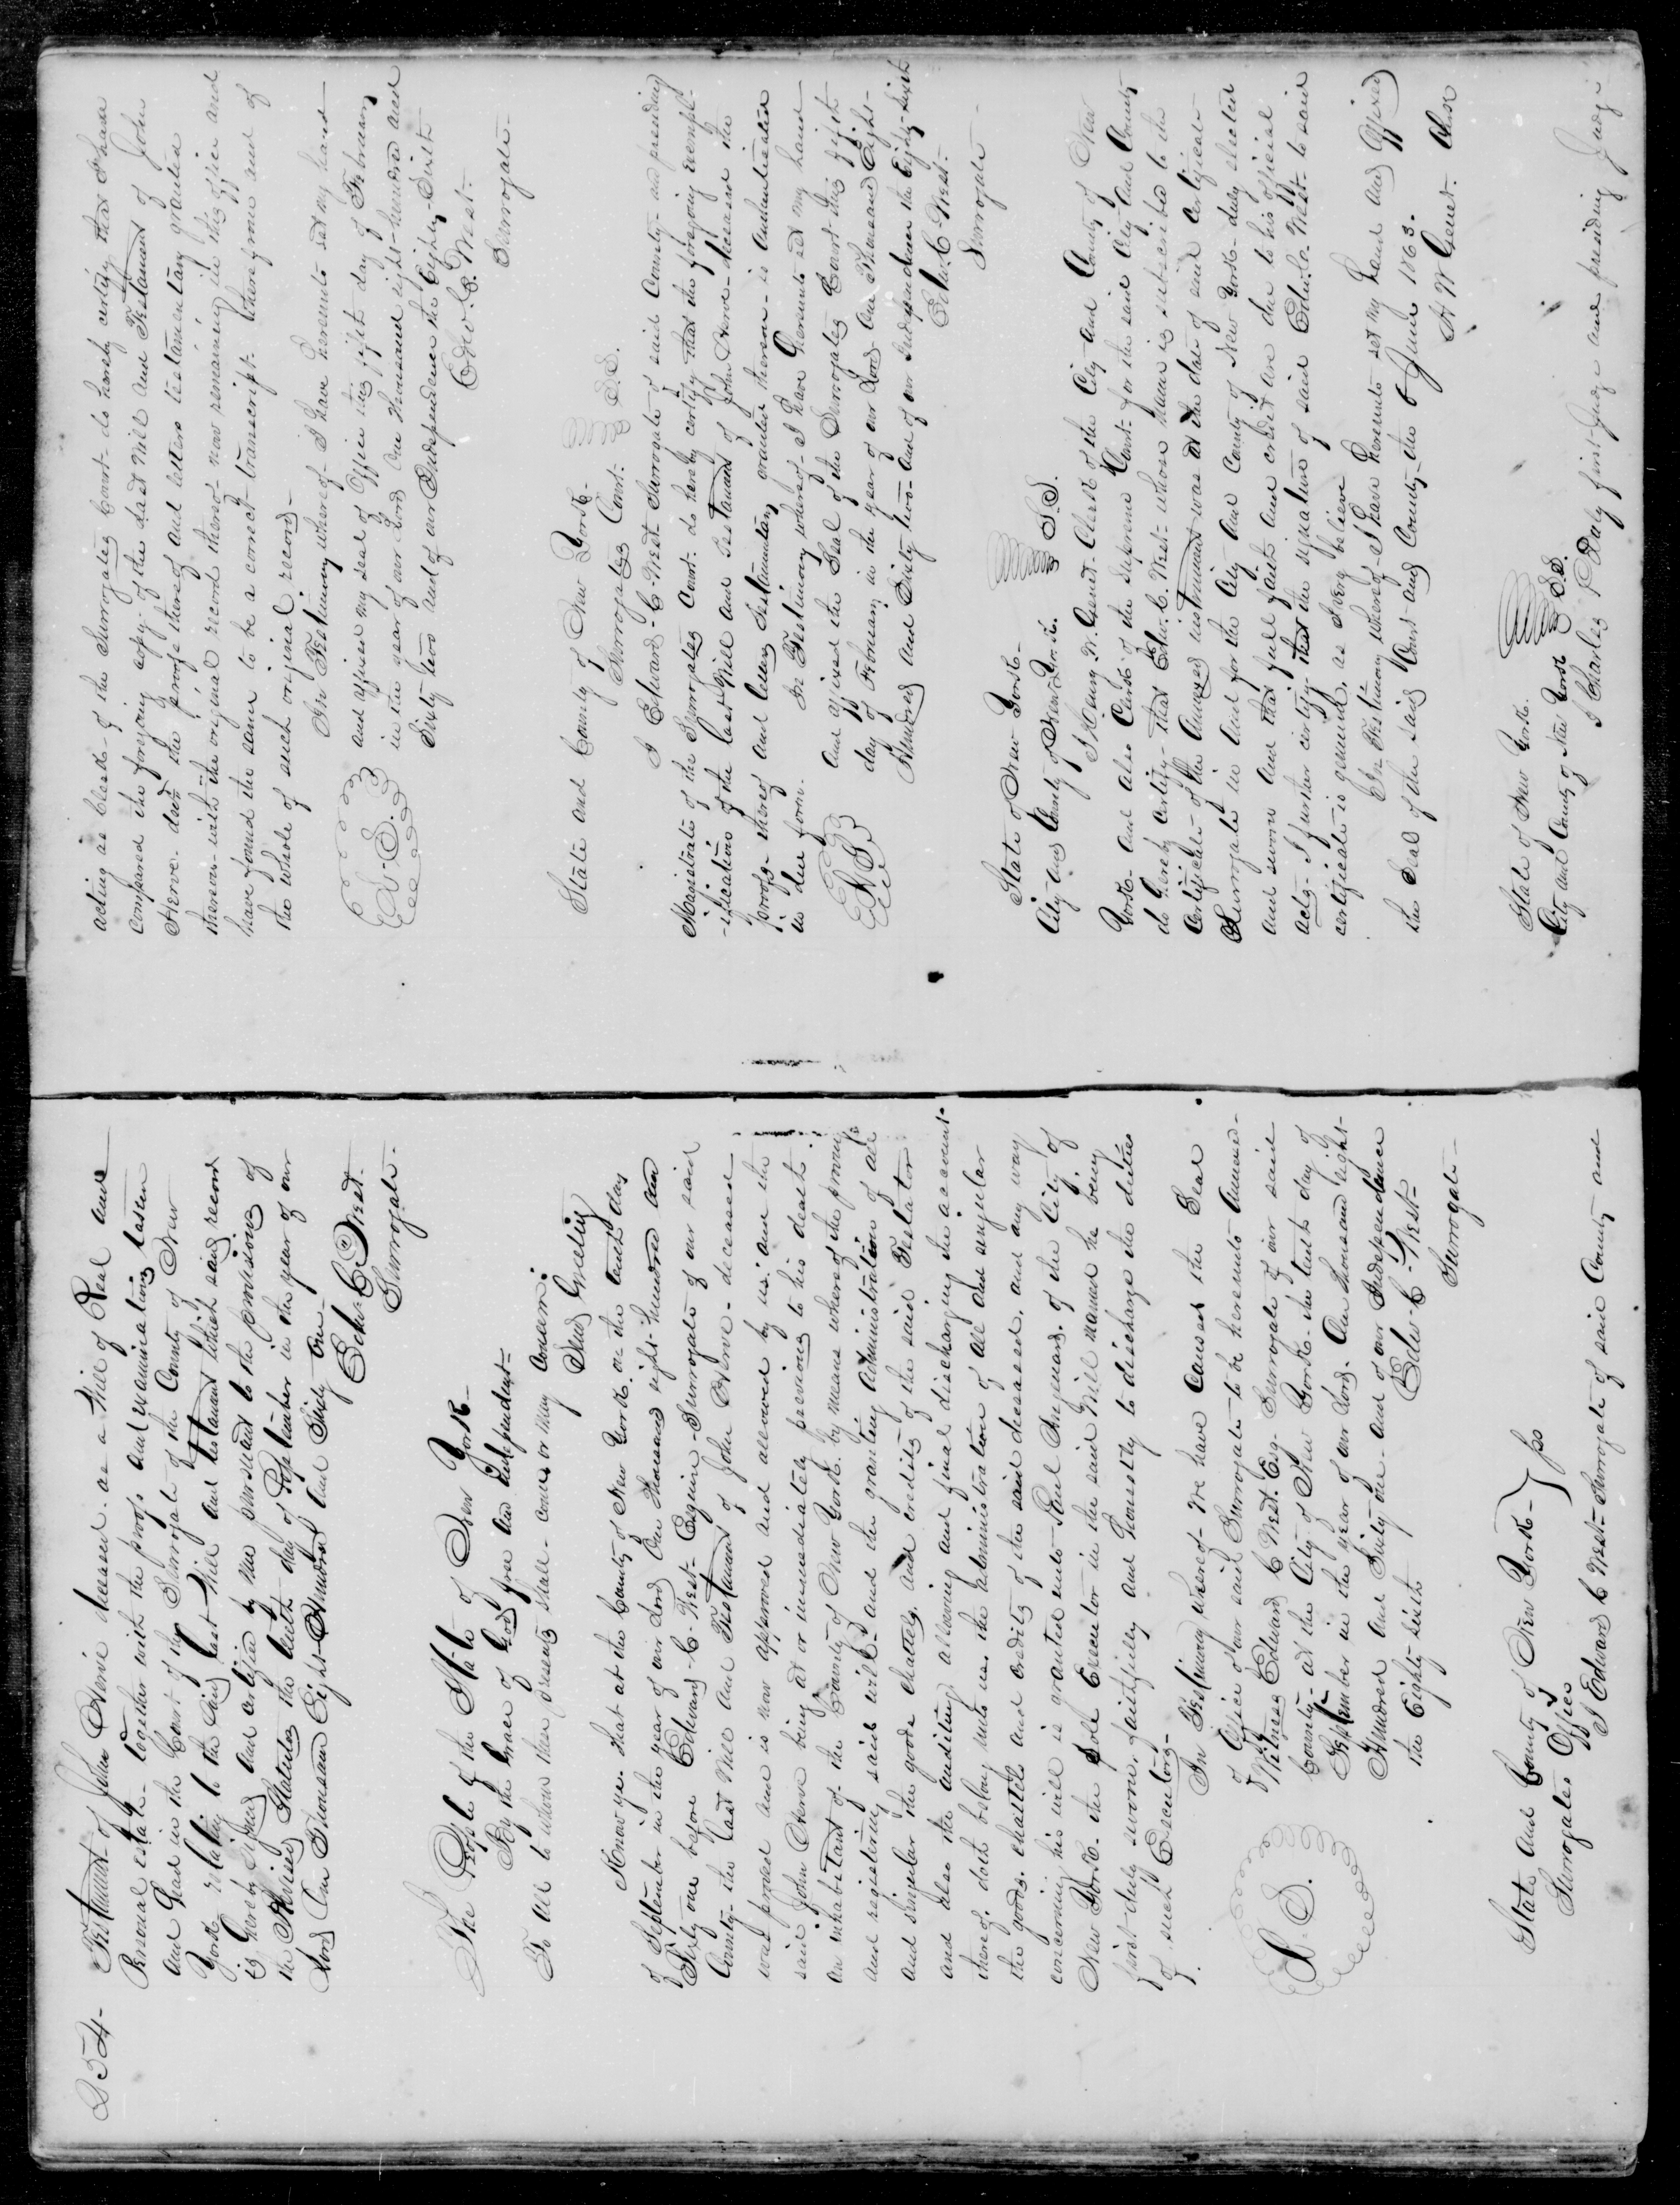 254-
Testament of John Herve deceased as a Will of Real and
Personal estate together with the proofs and examinations taken
and had in the Court of the Surrogate of the County of New
York relating to the said last Will and testament which said record
is hereby signed and certified by me pursuant to the provisions of
the Revised Statutes the tenth day of September in the year of our
Lord One Thousand Eight Hundred and Sixty one
Edw. C. West.
Surrogate.
The People of the State of New York
By the Grace of God free and independent
To all to whom these presents shall come or may concern.
Send Greeting
Know ye. that at the County of New York. on the tenth day
of September in the year of our Lord One Thousand eight hundred and
Sixty one before Edward C. West Esquire Surrogate of our said
County the last Will and Testament of John Herve deceased
was proved and is now approved and allowed by us. and the
said John Herve being at or immediately previous to his death
an inhabitant of the County of New York by means whereof the proving
and registering said will and the granting administration of all
and singular the goods chattels, and credits of the said Testator
and also the auditing allowing and final discharging the account
thereof, doth belong unto us. the administration of all and singular
the goods. chattels and credits of the said deceased, and any way
concerning his will is granted unto Paul Anquenard, of the City of
New York. the sole Executor in the said Will named he being
first duly sworn, faithfully and honestly to discharge the duties
of such Executor.
In Testimony whereof we have caused the Seal
of Office of our said Surrogate to be hereunto annexed-
Witness Edward C West. Esq. Surrogate of our said
County at the City of New York the tenth day of
September in the year of our Lord. One thousand eight
Hundred and Sixty one and of our Independence
the Eighty sixth
Edw C West
Surrogate
L. S.
State and County of New York } ss
Surrogates Office
I Edward C West Surrogate of said County and
acting as Clerk of the Surrogates Court do hereby certify that I have
compared the foregoing copy of the last Will and Testament of John
Herve decd the proofs thereof and letters testamentary granted
thereon with the original record thereof now remaining in this office and
have found the same to be a correct transcript therefrom and of
the whole of such original record.
In Testimony whereof I have hereunto set my hand
and affixed my seal of Office this fifth day of February
in the year of our Lord One thousand eight hundred and
Sixty two and of our Independence the Eighty Sixth
Edw. C. West.
Surrogate.
L. S.
State and County of New York.
Surrogates Court. S.S.
I Edward C. West Surrogate of said County and presiding
Magistrate of the Surrogates Court do hereby certify that the foregoing exempl-
-ification of the last Will and testament of John Herve deceased the
proofs thereof and letters testamentary granted thereon is authenticated
in due form.
In Testimony whereof I have hereunto set my hand
and affixed the Seal of the Surrogates Court this fifth
day of February in the year of our Lord One Thousand Eight-
Hundred and Sixty two and of our Independence the Eighty sixth
Edw. C. West.
Surrogate.
L S
State of New York.
City and County of New York. S.S.
I Henry W. Genet Clerk of the City and County of New
York and also Clerk of the Supreme Court for the said City and County
do hereby certify that Edw. C. West whose name is subscribed to the
Certificate of the Annexed instrument was at the date of said Certificate
Surrogate in and for the City and County of New York duly elected
and sworn and that full faith and credit are due to his official
acts. I further certify that the signature of said Edw. C. West to said
certificate is genuine, as I verily believe
In Testimony whereof I have hereunto set my hand and affixed
the Seal of the said Court and County the 6 June 1863.
H W Genet Clerk
State of New York.
City and County of New York S.S.
I Charles P Daly first Judge and presiding Judge